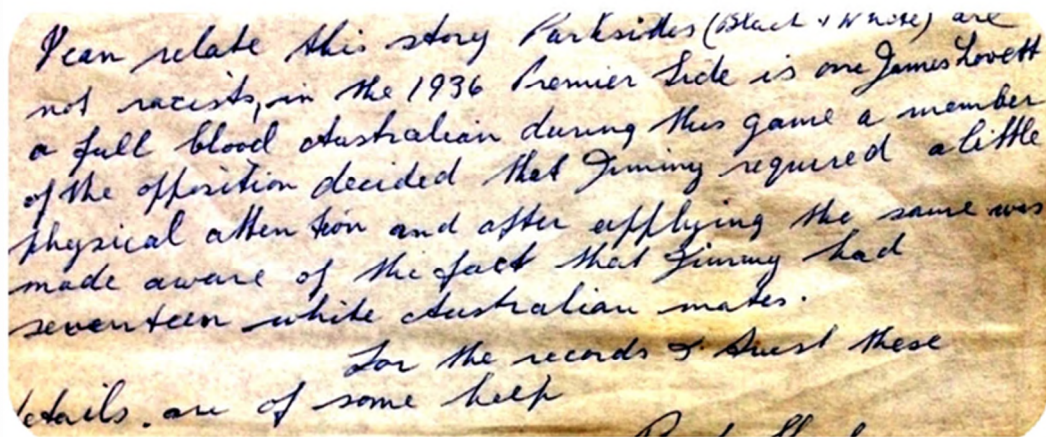 I can relate this story Parksides (Black & White) are
not racists, in the 1936 Premier Side is one James Lovett
a full blood Australian during this game a member
of the opposition decided that Jimmy required a little
physical attention and after applying the same was
made aware of the fact that Jimmy had
seventeen white Australian mates.
For the records I trust these
details are of some help